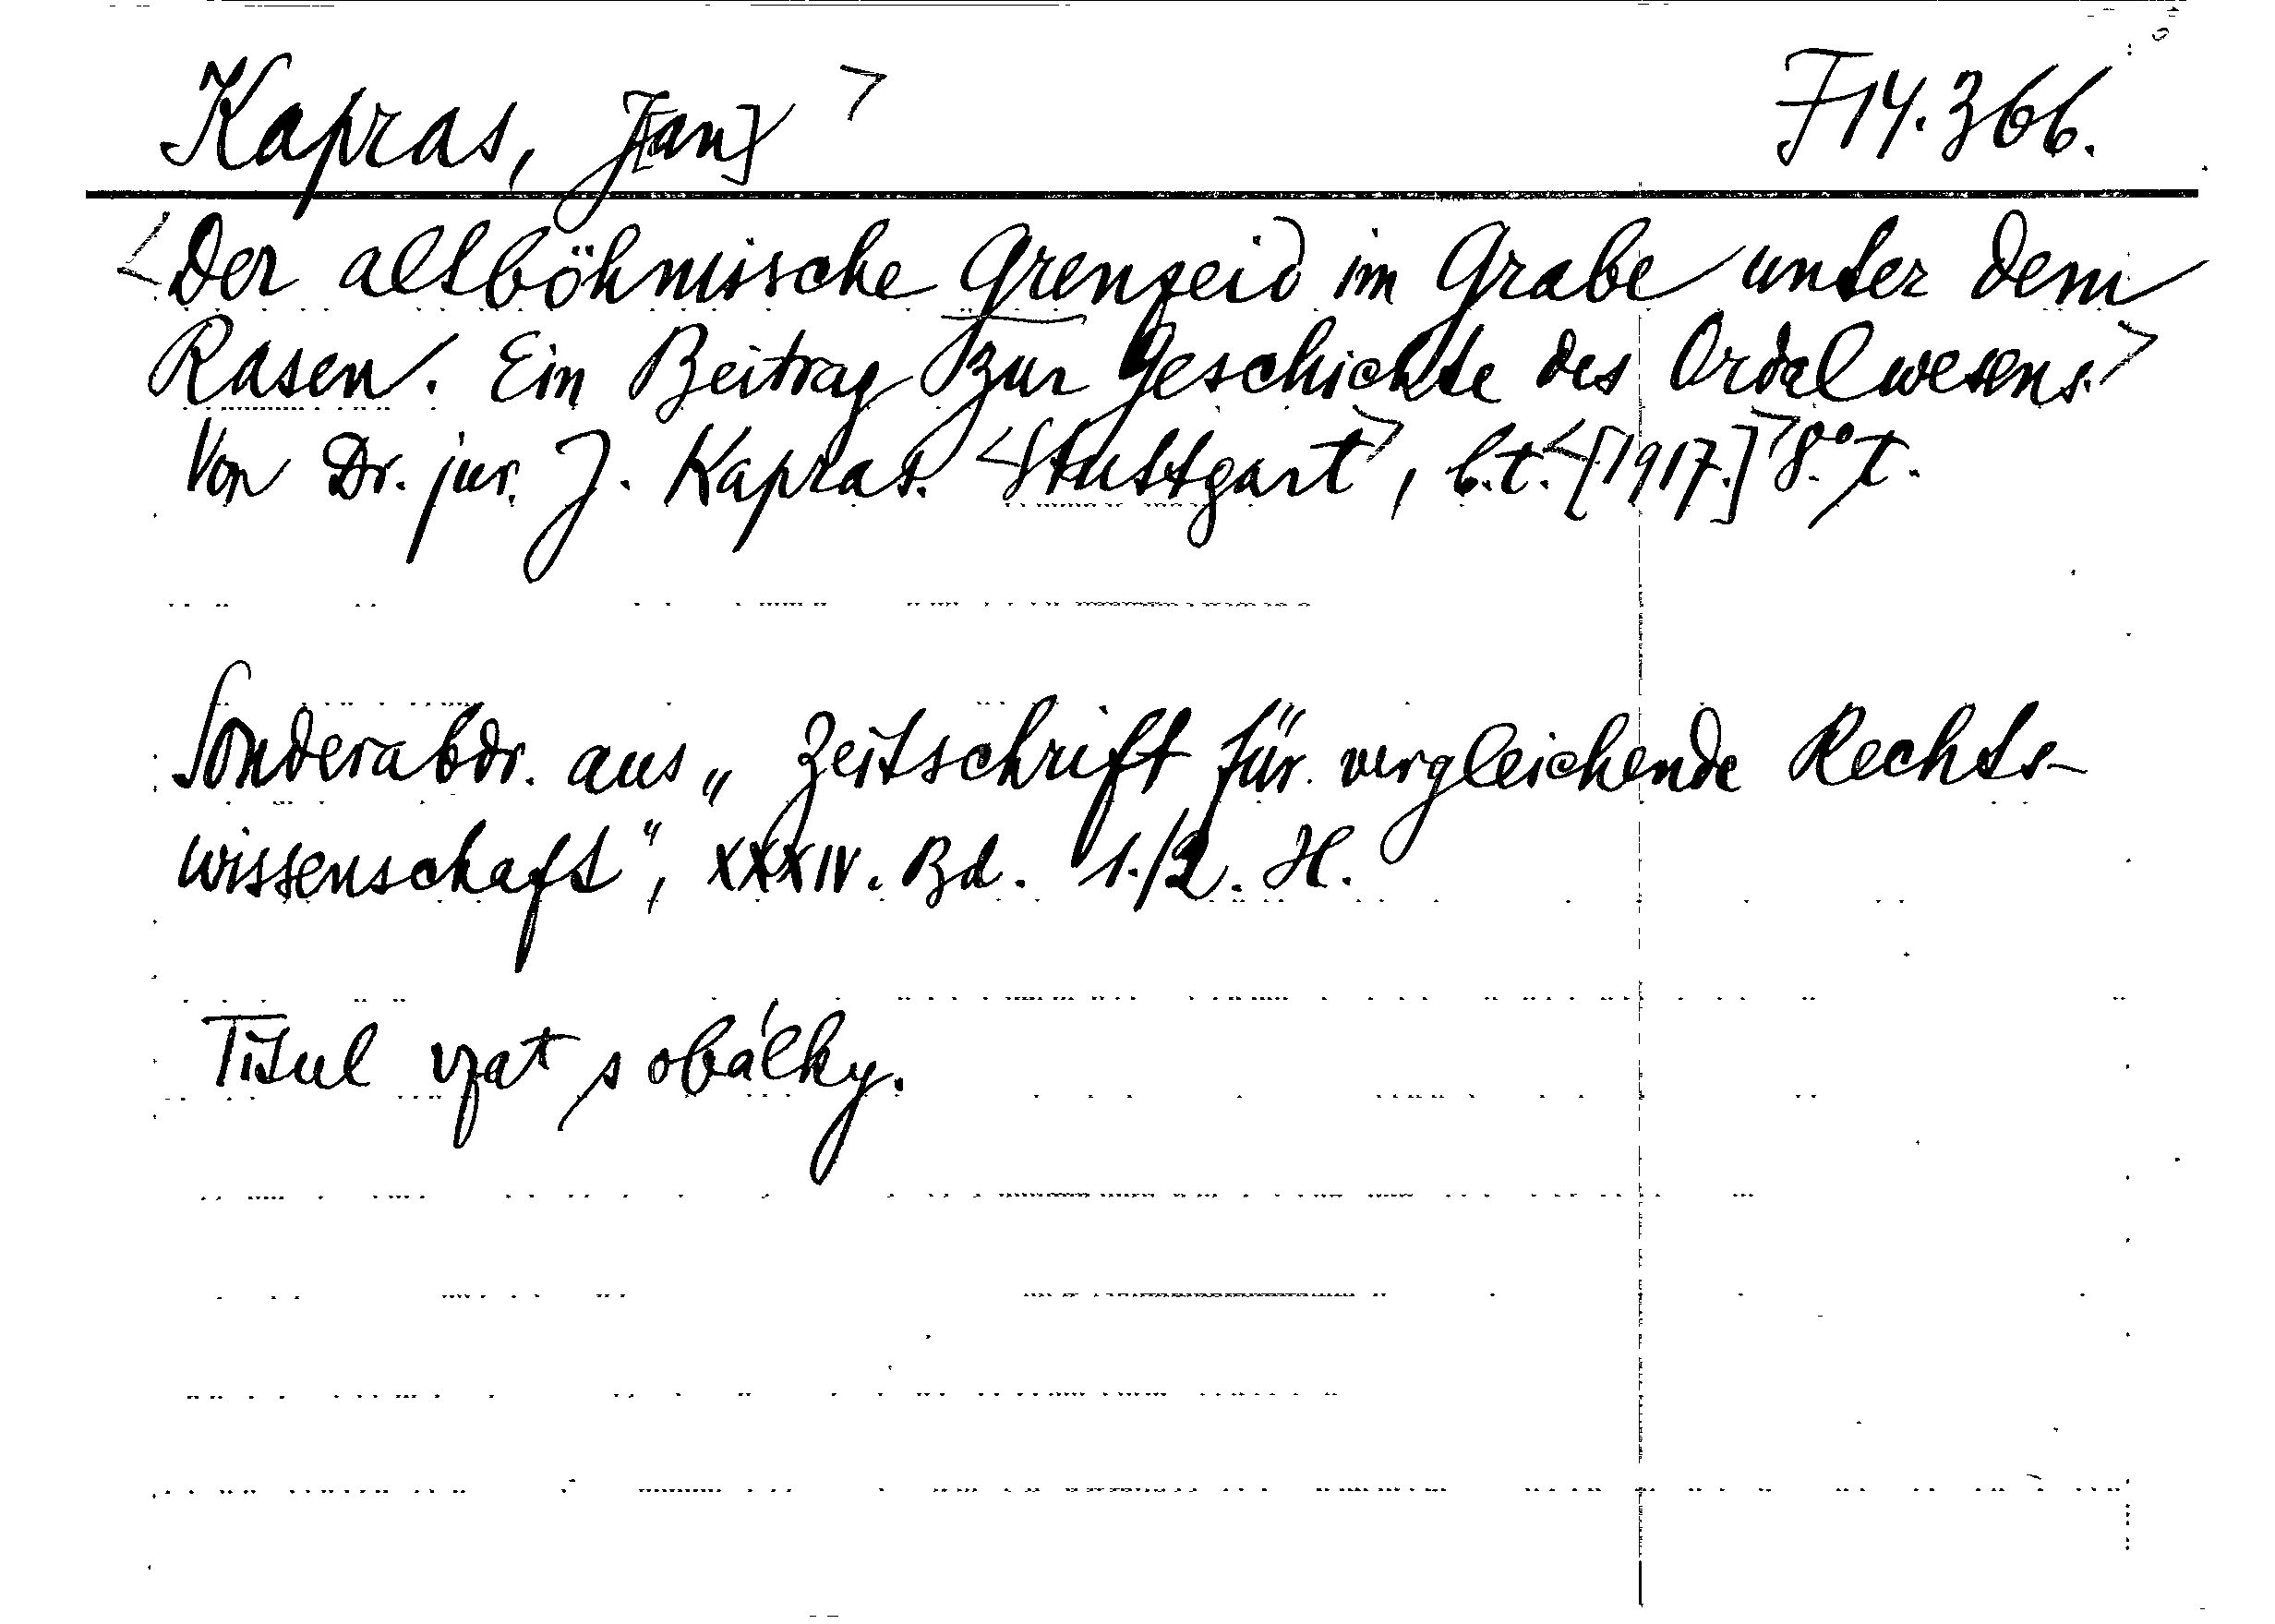 Kapras, J[an] > F 14.366.
<Der altböhmische Grenzeid im Grabe unter dem
Rasen. Ein Beitrag zur Geschichte des Ordalwesens.>
Von Dr. jur. J. Kapras. <Stuttgart>, b.t. <[1917.]> 8.° T.
Sonderabdr. aus „Zeitschrift für vergleichende Rechts-
wissenschaft“, XXXIV. Bd. 1./2. H.
Titul vzat s obálky.